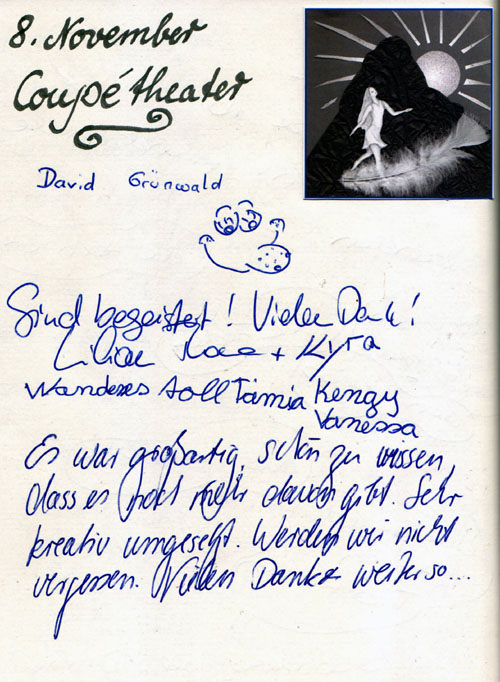 8. November
Coupétheater
David Grünwald
Sind begeistert! Vielen Dank!
Lilian + Kyra
Wanderes toll Tamia Kengy
Vanessa
Es war großartig, schön zu wissen,
dass es noch mehr davon gibt. Sehr
kreativ umgesetzt. Werden wir nicht
vergessen. Vielen Dank & weiter so...